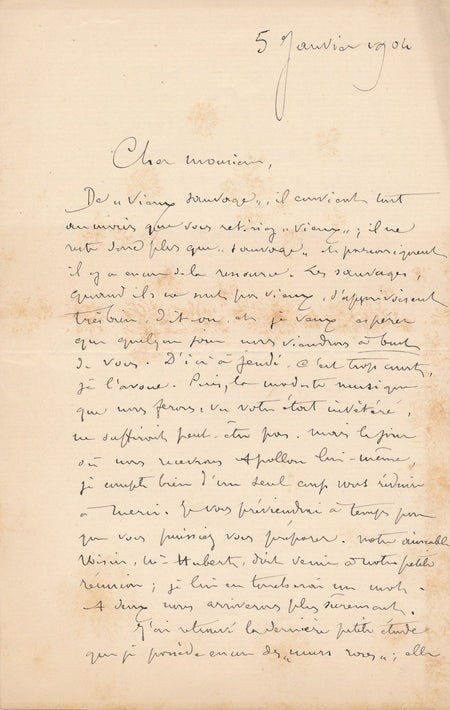 5 Janvier 1904
Cher monsieur,
De „vieux sauvage„, il convient tout
au moins que vous retiriez „vieux„; il ne
reste donc plus que „sauvage„ et par conséquent
il y a encore de la ressource. Les sauvages,
quand ils ne sont pas vieux, s'apprivoisent
très bien, dit-on, et je veux espérer
que quelque jour nous viendrons à bout
de vous. D'ici à Jeudi, c'est trop court,
je l'avoue. Puis, la modeste musique
que nous ferons, vu votre état invétéré,
ne suffirait peut-être pas. mais le jour
où nous recevrons Apollon lui-même,
je compte bien d'un seul coup vous réduire
à merci. Je vous préviendrai à temps pour
que vous puissiez vous préparer. notre aimable
voisin, Mr Hubert, doit venir à notre petite
réunion; je lui en toucherai un mot.
A deux nous arriverons plus sûrement.
J'ai retrouvé la dernière petite étude
que je possède encore des „murs roses„; elle